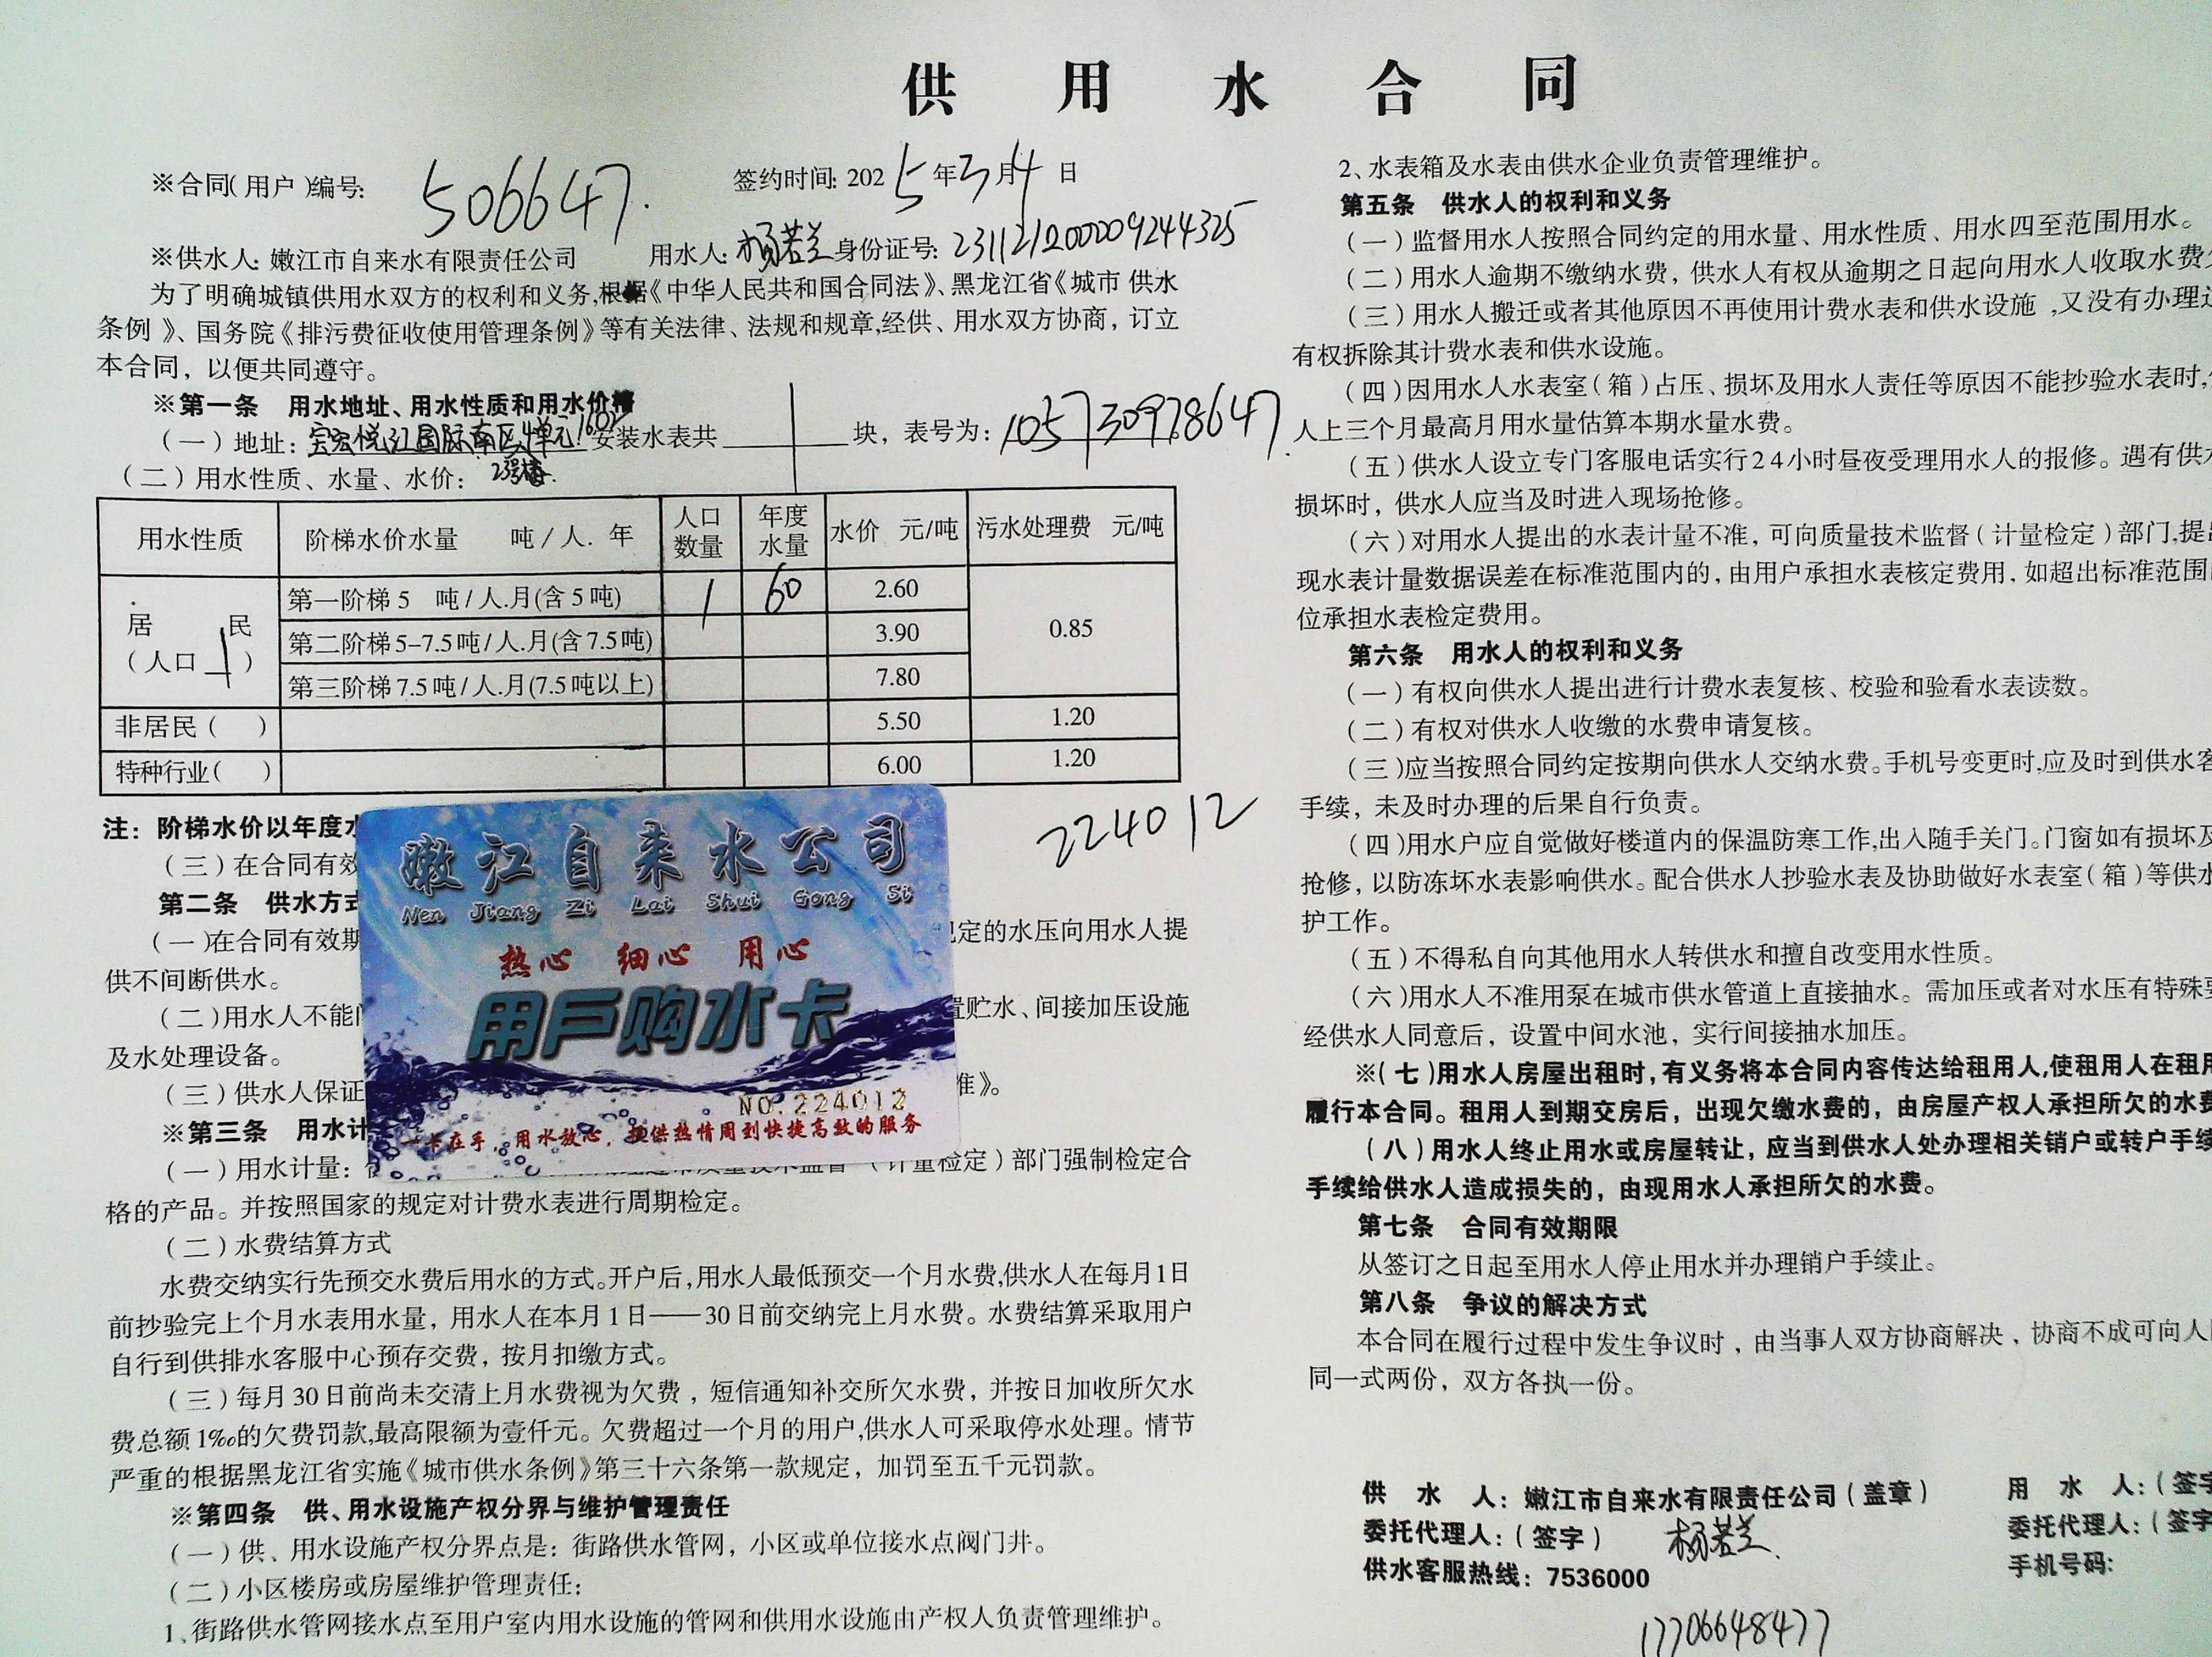 供用水合同
※合同(用户)编号: 506647. 签约时间: 2025年3月4日
※供水人: 嫩江市自来水有限责任公司 用水人: 杨若兰 身份证号: 231121200009244325
为了明确城镇供用水双方的权利和义务,根据《中华人民共和国合同法》、黑龙江省《城市 供水
条例》、国务院《排污费征收使用管理条例》等有关法律、法规和规章,经供、用水双方协商，订立
本合同，以便共同遵守。
※第一条 用水地址、用水性质和用水价格
(一)地址: 宝宏悦江国际南区4单元1602 安装水表共 1 块，表号为: 105730978647
23号楼
(二)用水性质、水量、水价:
用水性质 阶梯水价水量 吨/人. 年 人口数量 年度水量 水价 元/吨 污水处理费 元/吨
居民(人口 1 ) 第一阶梯 5 吨/人.月(含 5 吨) 1 60 2.60 0.85
第二阶梯 5-7.5吨/人.月(含 7.5 吨) 3.90
第三阶梯 7.5 吨/人.月(7.5 吨以上) 7.80
非居民( ) 5.50 1.20
特种行业( ) 6.00 1.20
注: 阶梯水价以年度
224012
(三)在合同有效
第二条 供水方式
(一)在合同有效期 定的水压向用水人提
供不间断供水。
(二)用水人不能 置贮水、间接加压设施
及水处理设备。
(三)供水人保证 准》。
※第三条 用水计
(一)用水计量: (计量检定)部门强制检定合
格的产品。并按照国家的规定对计费水表进行周期检定。
(二)水费结算方式
水费交纳实行先预交水费后用水的方式。开户后,用水人最低预交一个月水费,供水人在每月1日
前抄验完上个月水表用水量，用水人在本月1日——30日前交纳完上月水费。水费结算采取用户
自行到供排水客服中心预存交费，按月扣缴方式。
(三)每月30日前尚未交清上月水费视为欠费，短信通知补交所欠水费，并按日加收所欠水
费总额1‰的欠费罚款,最高限额为壹仟元。欠费超过一个月的用户,供水人可采取停水处理。情节
严重的根据黑龙江省实施《城市供水条例》第三十六条第一款规定，加罚至五千元罚款。
※第四条 供、用水设施产权分界与维护管理责任
(一)供、用水设施产权分界点是: 街路供水管网，小区或单位接水点阀门井。
(二)小区楼房或房屋维护管理责任:
1、街路供水管网接水点至用户室内用水设施的管网和供用水设施由产权人负责管理维护。
嫩江自来水公司
Nen Jiang Zi Lai Shui Gong Si
热心 细心 用心
用户购水卡
NO.224012
一卡在手，用水放心，提供热情周到快捷高效的服务
2、水表箱及水表由供水企业负责管理维护。
第五条 供水人的权利和义务
(一)监督用水人按照合同约定的用水量、用水性质、用水四至范围用水。
(二)用水人逾期不缴纳水费，供水人有权从逾期之日起向用水人收取水费
(三)用水人搬迁或者其他原因不再使用计费水表和供水设施,又没有办理
有权拆除其计费水表和供水设施。
(四)因用水人水表室(箱)占压、损坏及用水人责任等原因不能抄验水表时,
人上三个月最高月用水量估算本期水量水费。
(五)供水人设立专门客服电话实行24小时昼夜受理用水人的报修。遇有供水
损坏时，供水人应当及时进入现场抢修。
(六)对用水人提出的水表计量不准，可向质量技术监督(计量检定)部门,提
现水表计量数据误差在标准范围内的,由用户承担水表核定费用,如超出标准范围
位承担水表检定费用。
第六条 用水人的权利和义务
(一)有权向供水人提出进行计费水表复核、校验和验看水表读数。
(二)有权对供水人收缴的水费申请复核。
(三)应当按照合同约定按期向供水人交纳水费。手机号变更时,应及时到供水客
手续，未及时办理的后果自行负责。
(四)用水户应自觉做好楼道内的保温防寒工作,出入随手关门。门窗如有损坏及
抢修，以防冻坏水表影响供水。配合供水人抄验水表及协助做好水表室(箱)等供水
护工作。
(五)不得私自向其他用水人转供水和擅自改变用水性质。
(六)用水人不准用泵在城市供水管道上直接抽水。需加压或者对水压有特殊要
经供水人同意后，设置中间水池，实行间接抽水加压。
※(七)用水人房屋出租时,有义务将本合同内容传达给租用人,使租用人在租用
履行本合同。租用人到期交房后，出现欠缴水费的，由房屋产权人承担所欠的水费
(八)用水人终止用水或房屋转让，应当到供水人处办理相关销户或转户手续
手续给供水人造成损失的，由现用水人承担所欠的水费。
第七条 合同有效期限
从签订之日起至用水人停止用水并办理销户手续止。
第八条 争议的解决方式
本合同在履行过程中发生争议时，由当事人双方协商解决，协商不成可向人
同一式两份，双方各执一份。
供 水 人: 嫩江市自来水有限责任公司(盖章) 用 水 人:(签字
委托代理人:(签字) 杨若兰 委托代理人:(签字
供水客服热线: 7536000 手机号码:
17706648477